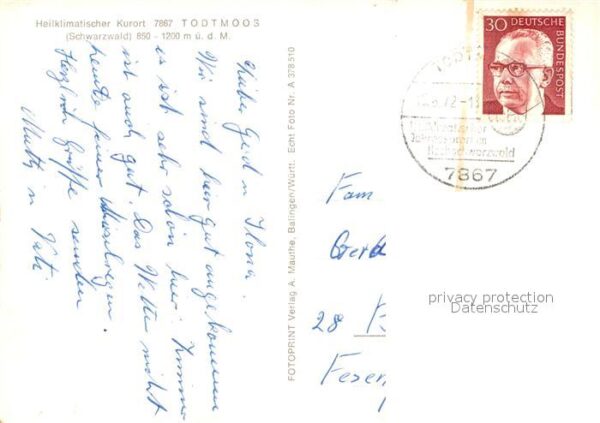 Heilklimatischer Kurort 7867 TODTMOOS
(Schwarzwald) 850 - 1200 m ü. d. M.
Lieber Gerd u Ilona.
Wir sind hier gut angekommen
es ist sehr schön hier. Zimmer
ist auch gut. Das Wetter nicht
heute feiner Nieselregen.
Herzlich Grüße senden
Mutti u Vati.
FOTOPRINT Verlag A. Mauthe, Balingen/Württ. Echt Foto Nr. A 378510
30 DEUTSCHE
BUNDESPOST
72-1
Hochschwarzwald
7867
Fam
Gerd
28
privacy protection
Datenschutz